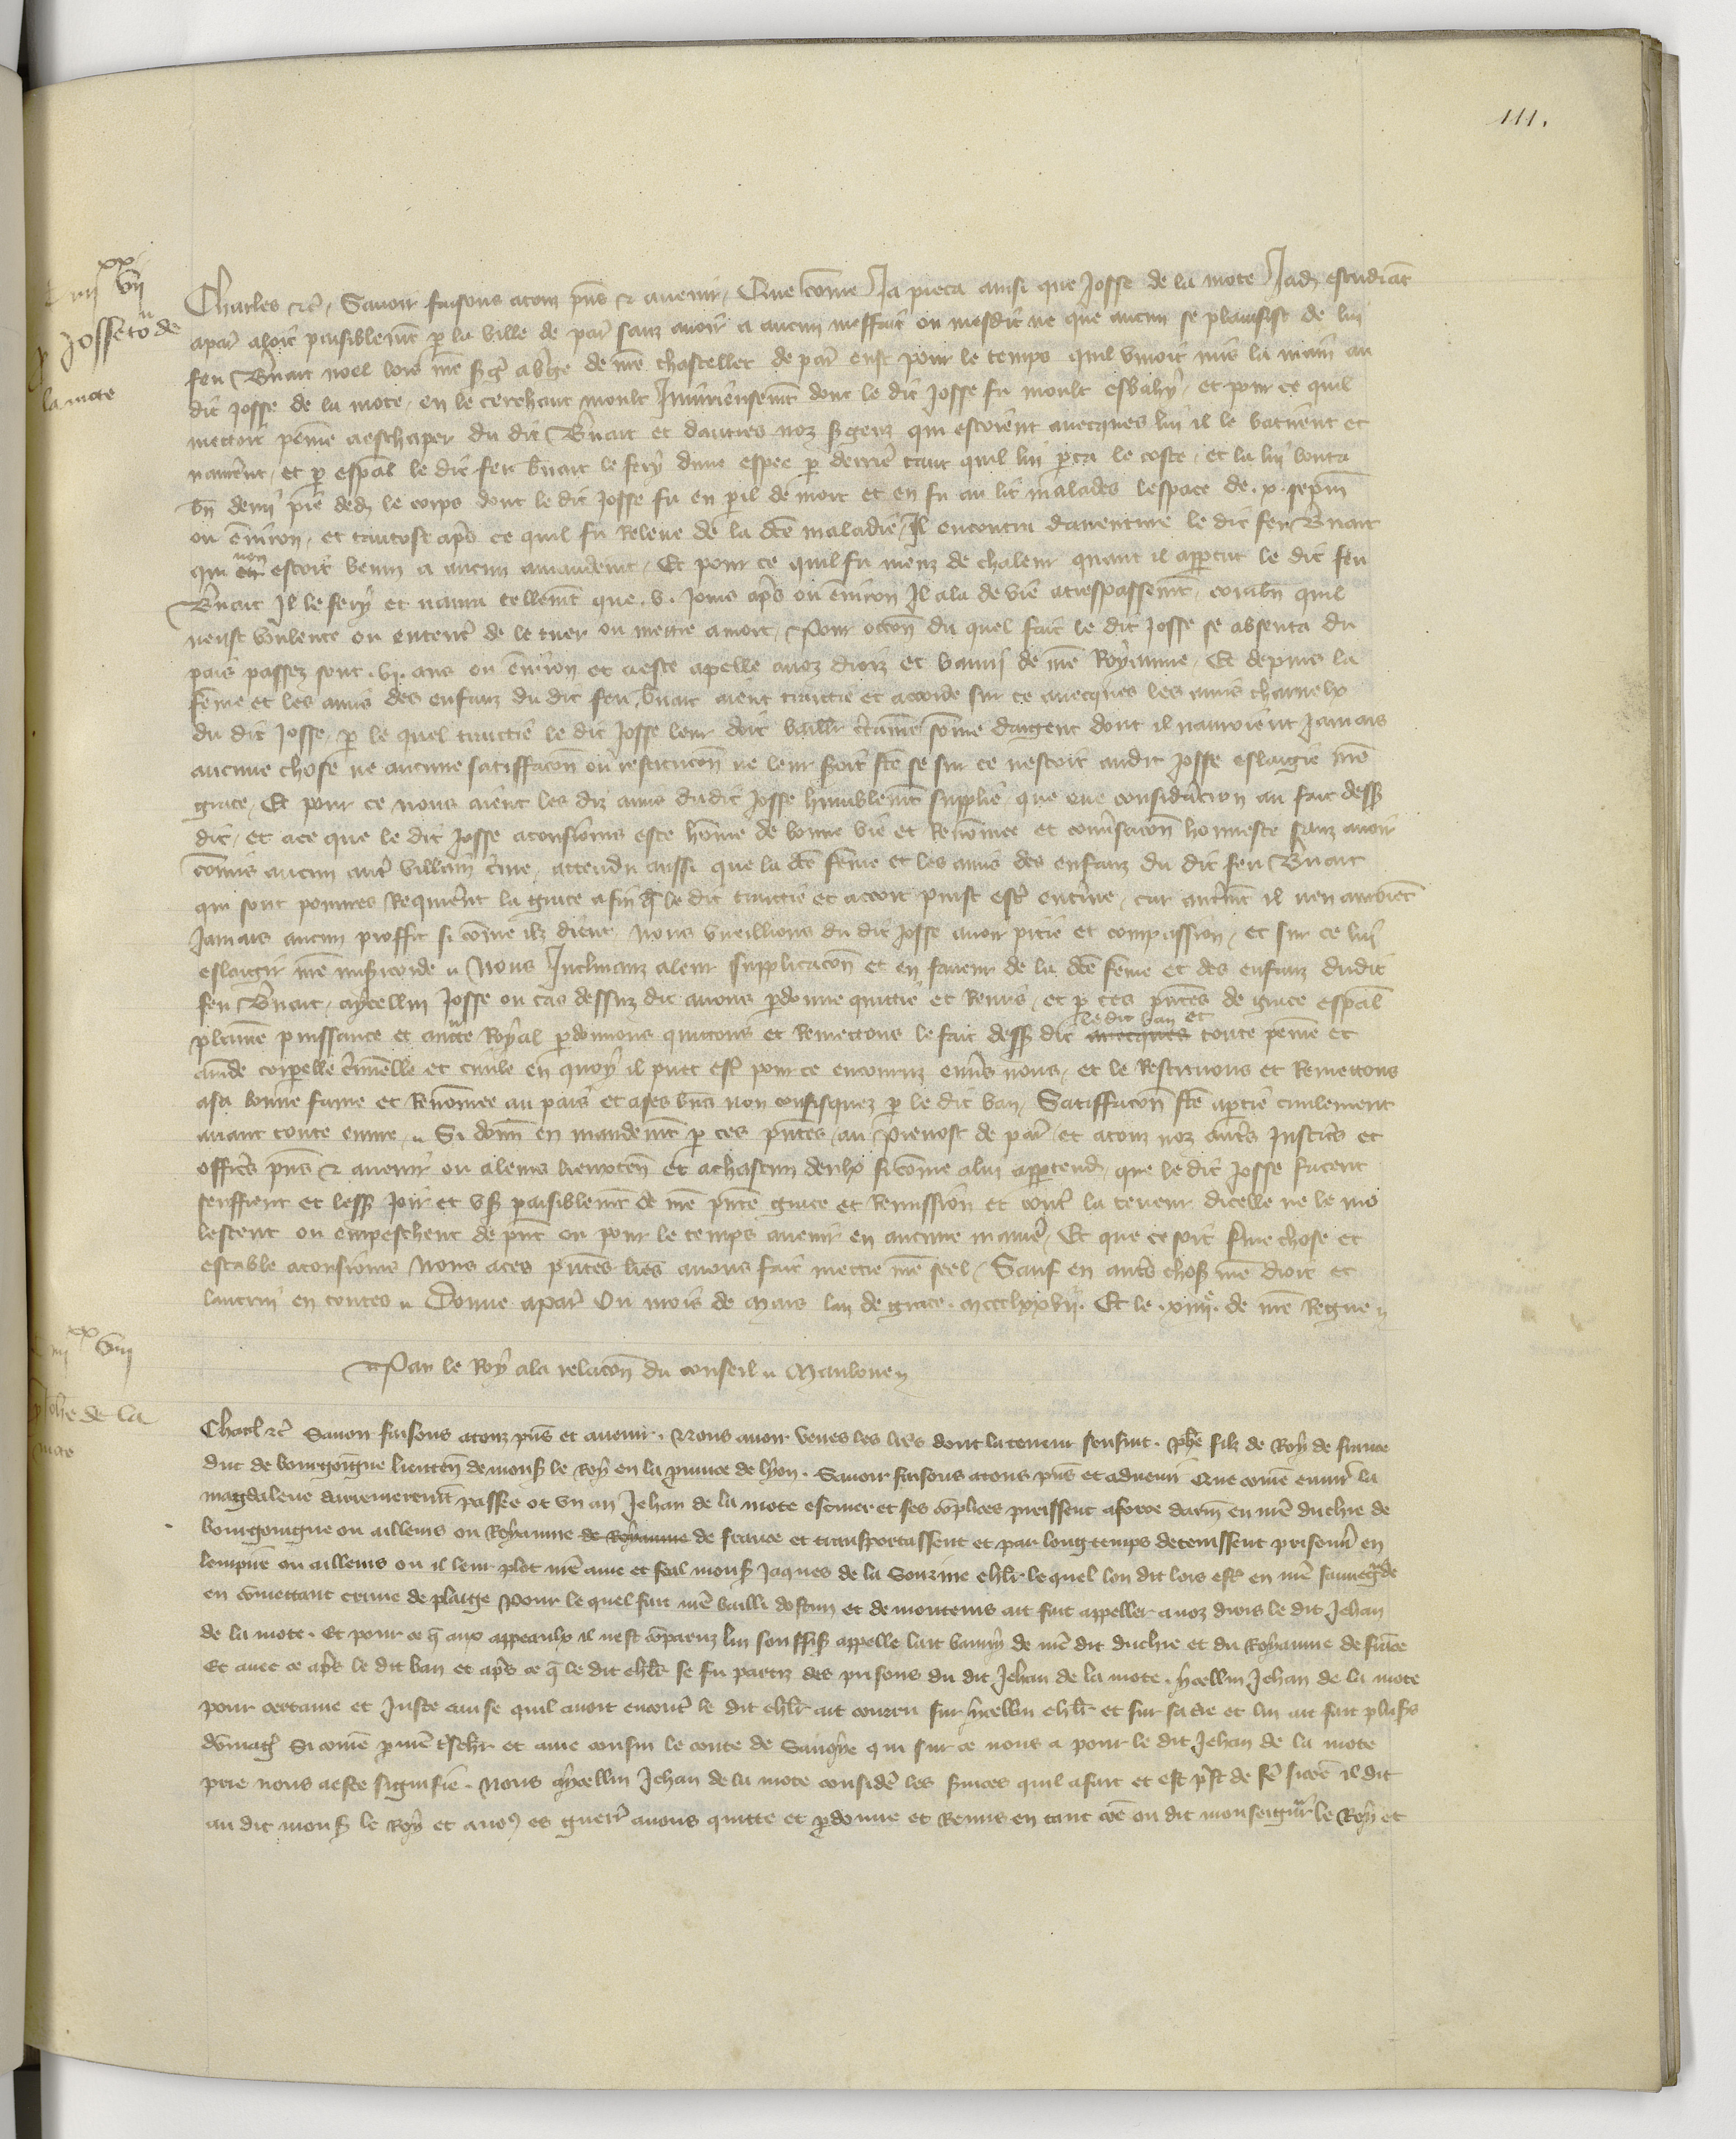 111.
xx
iiii vii
Josseto de
la mote
Charles etc. Savoir faisons a tous pñs & avenir, Que côme Ja pieca ainsi que Josse de la mote Jadis estudiāt
a par' aloit paisiblemt p la ville de par' sanz avoir a aucun meffait ou mesdit ne que aucun se plainsist de lui
feu Bñart noel lors nre sgt a vge de nre chastellet de par' eust pour le temps quil vivoit mis la main au
dit Josse de la mote, en le cerchant moult Iniurieusemt dont le dit Josse fu moult esbahy, et pour ce quil
mettoit peine a eschaper du dit Bñart et dautres noz sgens qui estoient avecques lui il le batirent et
navrerent, et p espāl le dit feu bñart le fery dune espee p derrier tant quil lui pca le coste, et la lui bouta
bñ demi pie dedens le corps dont le dit Josse fu en pil de mort et en fu au lit malades lespace de .x. sepm
ou environ, et tantost apres ce quil fu releve de la dce maladie, Il encontra daventure le dit feu Bñart
qui non estoit venu a aucun amandemt, Et pour ce quil fu meuz de chaleur quant il appcut le dit feu
Bñart Il le fery et navra tellemt que .v. Jours apres ou environ Il ala de vie a trespassemt, combn quil
neust voulente ou entente de le tuer ou mettre a mort, Pour occōn du quel fait le dit Josse se absenta du
pais passez sont .vi. ans ou environ et a este apelle a noz droiz et banni de nre Royaume, Et depuis la
fême et les amis des enfanz du dit feu bñart aient traittie et accorde sur ce avecques les amis charnelx
du dit Josse, p le quel traittie le dit Josse leur doit baillr ctaine sôme dargent dont il nauroient Jamais
aucune chose ne aucune satiffacōn ou restitucōn ne leur seroit fte se sur ce nestoit audit Josse eslargie nre
grace, Et pour ce nous aient les diz amis dudit Josse humblemt supplie, que eue consideracion au fait dess
dit, et a ce que le dit Josse a tousiours este hôme de bonne vie et Renômee et convsacōn honneste sanz avoir
cômis aucun autre villain crime, attendu aussi que la dce fême et les amis des enfanz du dit feu Bñart
qui sont pouvres Requierent la grace afin q le dit traittie et accort puist estre enterine, car autremt il nen auroient
Jamais aucun proffit si côme ilz dient, Nous vueillions du dit Josse avoir pitie et compassion, et sur ce lui
eslargir nre misicorde Nous Inclinanz a leur supplicacōn et en faveur de la dce fême et des enfanz dudit
feu Bñart, aycellui Josse ou cas dessuz dit avons pdonne quittie et Remis, et p ces pñtes de grace espāl
plaine puissance et auctte Royal pdonnons quittons et Remettons le fait dess dit avecques le dit ban et toute peine et
amde corpelle criminelle et civile en quoy il puet estre pour ce encouruz envs nous, et le Restituons et Remettons
a sa bonne fame et Renômee au pais et a ses bñs non confisquez p le dit ban, Satiffacōn fte a ptie civilement
avant toute euvre, Si donn en mandemt p ces pñtes, au Prevost de par' et a tous noz autres Justiciers et
officrs pñs & avenir ou a leurs lieuxten et a chascun deulx si côme a lui apptendra, que le dit Josse facent
seuffrent et less Joir et vser paisiblemt de nre pñte grace et Remission et contre la teneur dicelle ne le mo
lestent ou empeschent de pñt ou pour le temps avenir en aucune manie, Et que ce soit ferme chose et
estable a tousiours Nous a ces pñtes lres avons fait mettre nre seel, Sauf en autres choses nre droit et
lautrui en toutes Donne a par' Ou mois de Mars lan de grace .mccclxxvii. Et le .xiiiie. de nre Regne
Par le Roy a la relacōn du conseil Maulone
xx
iiii viii
Jehe de la
mote
Charl etc Savoir faisons a touz pñs et avenir. Nous avoir veues les lres dont la teneur sensuit. Phe filz de Roy de france
duc de bourgoingne lieuten de mons le Roy en la pvince de lyon. Savoir faisons a tous pñs et advenir Que côme environ la
magdalene darrienneremt passee ot vn an Jehan de la mote escuier et ses côplices preissent a force darm en nre duchie de
bourgoingne ou ailleurs ou Royaume de Royaume de france et transportassent et par long temps detenissent prisonier en
lempire ou ailleurs ou il leur plot nre ame et feal mons Jaques de la Sourine chlr le quel lon dit lors estre en nre sauvegde
en cômettant crime de plaige Pour le quel fait nre bailli dostun et de moncenis ait fait appeller a noz drois le dit Jehan
de la mote. Et pour ce q aux appeaulx il nest côparuz lui souffis appelle lait banny de nre dit duchie et du Royaume de france
Et avec ce apres le dit ban et apres ce q le dit chlr se fu partiz des prisons du dit Jehan de la mote. ycellui Jehan de la mote
pour certaine et Juste cause quil avoit encontre le dit chlr ait couru sur ycellui chlr et sur sa tre et lui ait fait plusrs
dômages Si côme p nre tscher et ame cousin le conte de Savoye qui sur ce nous a pour le dit Jehan de la mote
prie nous a este signifie. Nous aycellui Jehan de la mote consider les svices quil a fait et est pst de fere sicôe il dit
au dit mons le Roy et a nos es guerres avons quitte et pdonne et Remis en tant côe ou dit monseigneur le Roy et